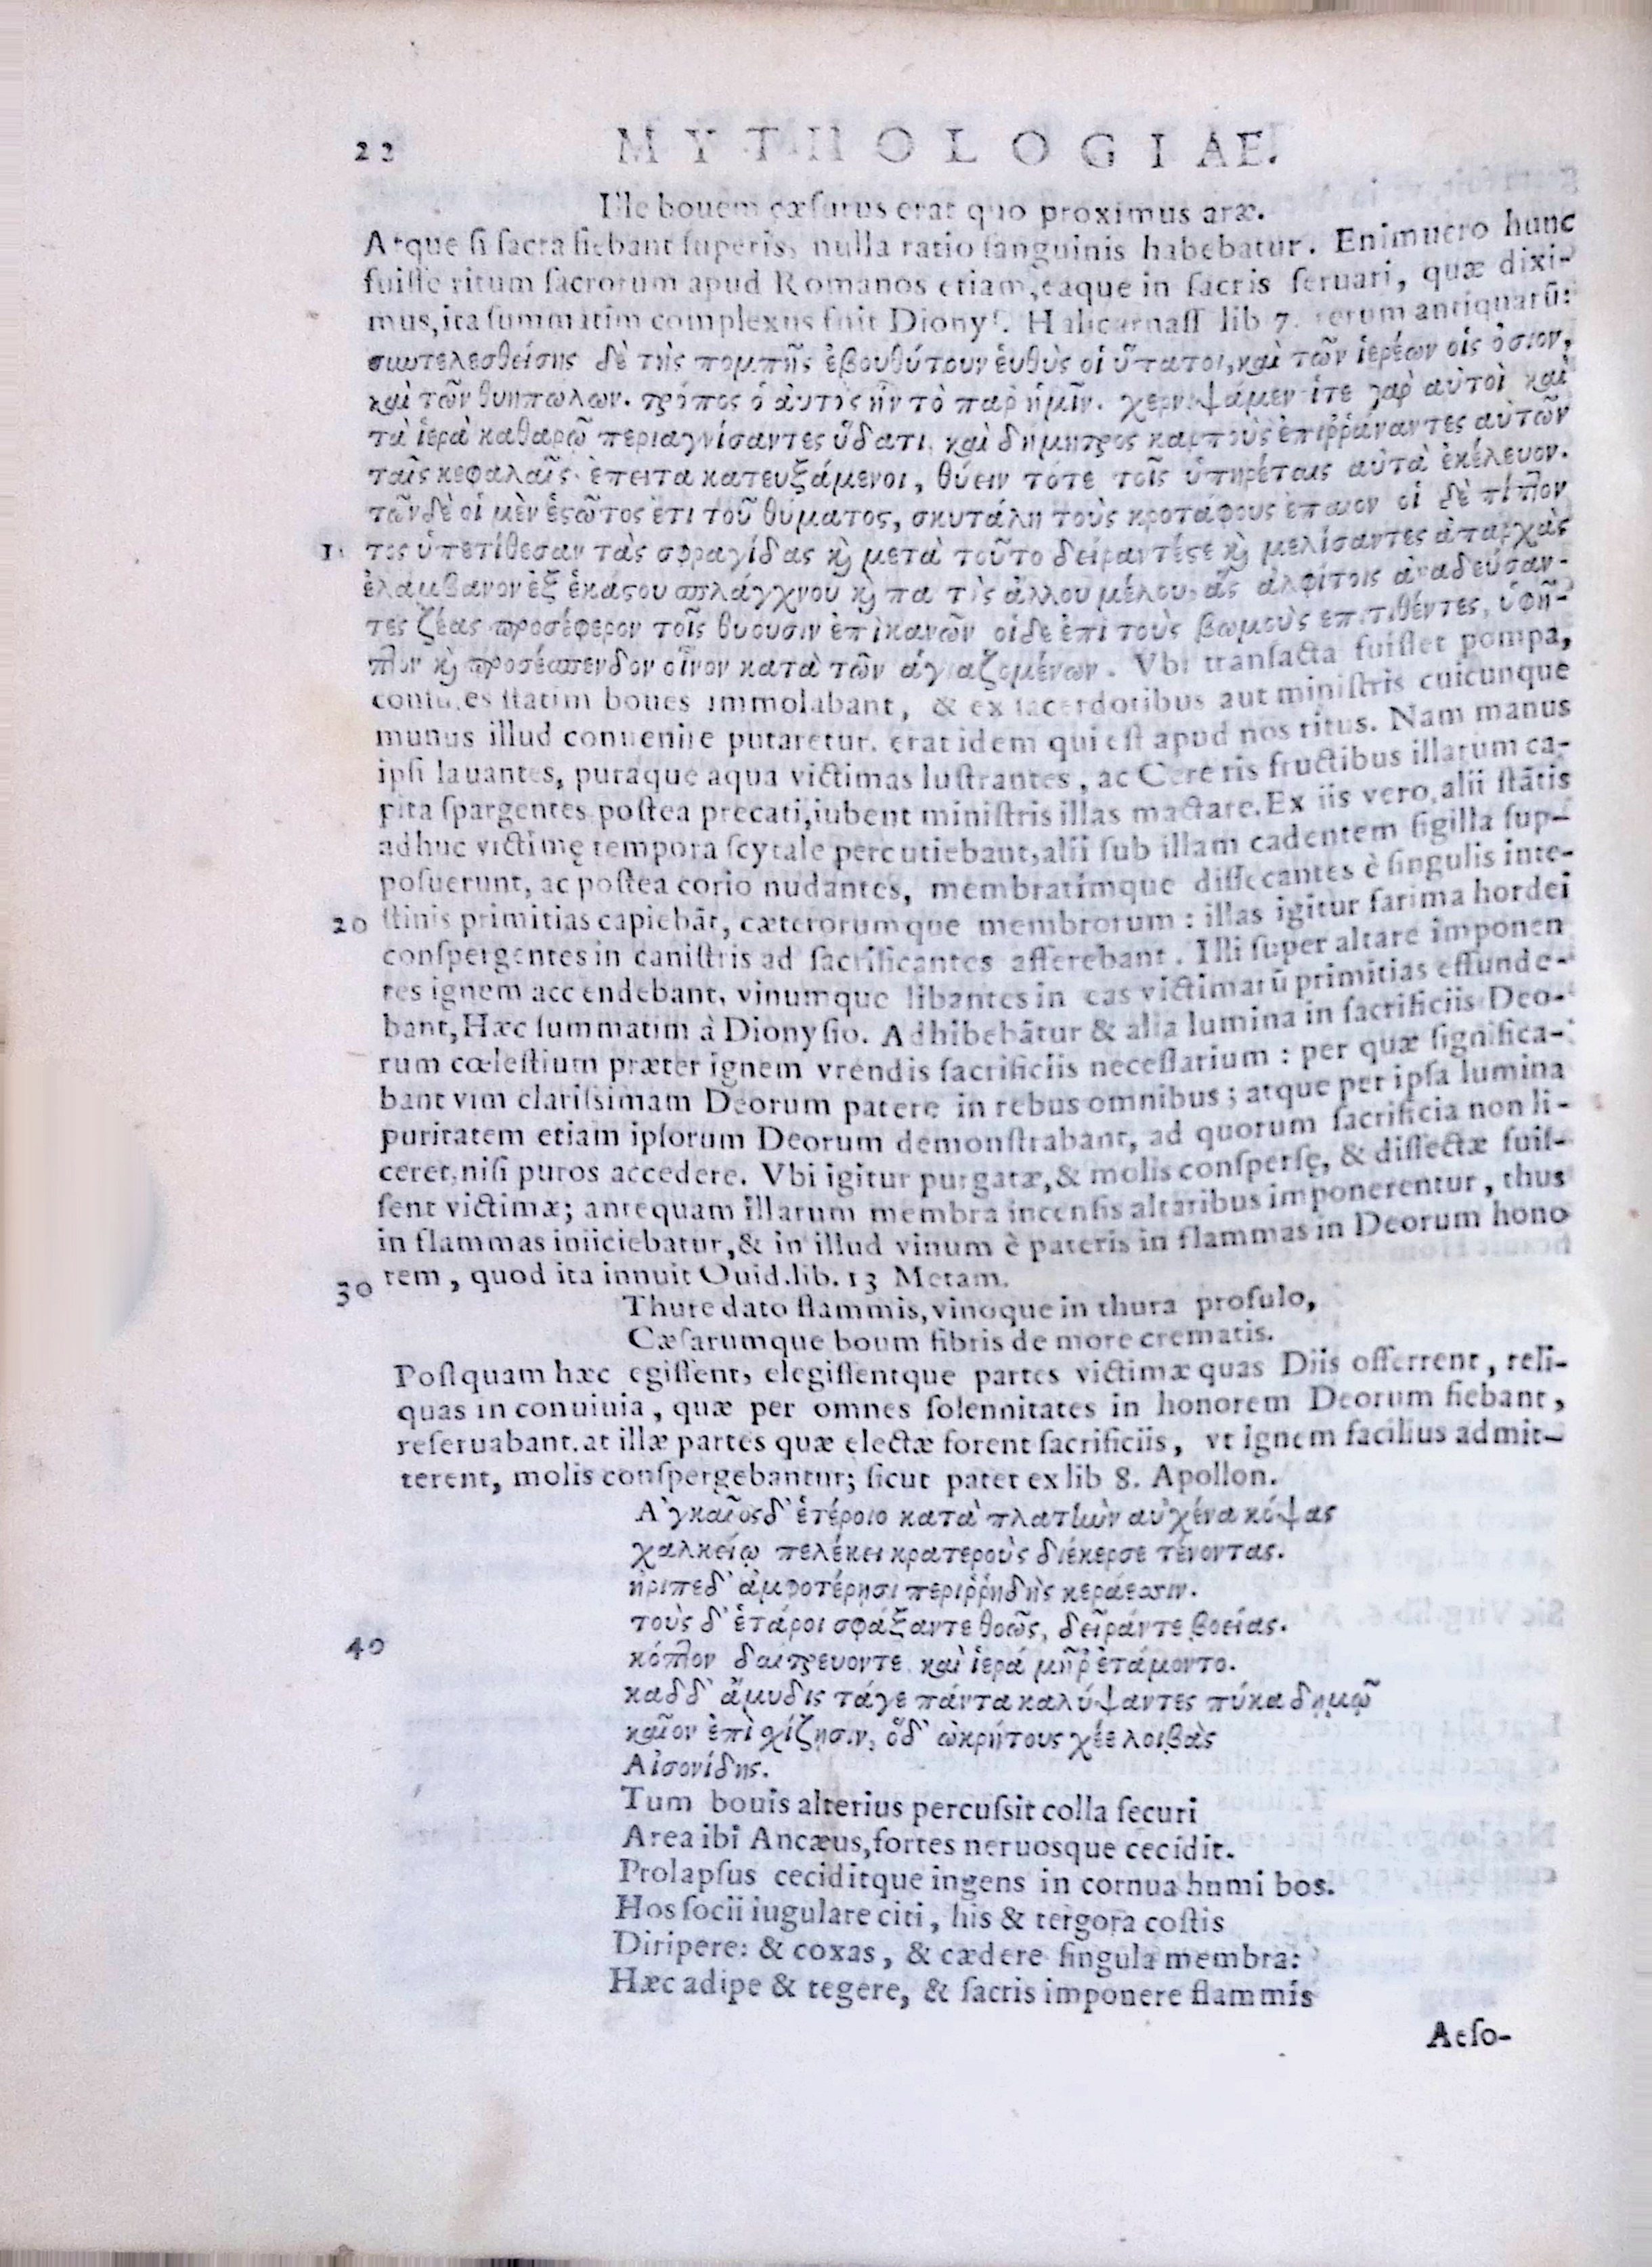 22 MYTHOLOGIAE.
Ille bouem cæſurus erat quo proximus aræ.
Atque ſi ſacra fiebant ſuperis, nulla ratio ſanguinis habebatur. Enimuero hunc
fuiſſe ritum ſacrorum apud Romanos etiam, eaque in ſacris ſeruari, quæ dixi-
mus, ita ſummatim complexus fuit Dionyſ. Halicarnaſſ lib 7. rerum antiquarū:
συντελεσθείσης δὲ τῆς πομπῆς ἐβουθύτουν ἐυθὺς οἱ ὕπατοι, καὶ τῶν ἱερέων οἷς ὅσιον,
καὶ τῶν θυηπωλων. τρόπος ὁ ἀυτὸς ἦν τὸ παρ ἡμῖν. χερνιψάμενοίτε γαρ αὐτοὶ καὶ
τὰ ἱερὰ καθαρῶ περιαγνίσαντες ὕδατι, καὶ δήμητρος καρποὺς ἐπιῤῥάναντες αὐτῶν
ταῖς κεφαλαῖς. ἐπειτα κατευξάμενοι, θύειν τότε τοῖς ὑπηρέταις αὐτὰ ἐκέλευον.
τῶνδὲ οἱ μὲν ἑςῶτος ἐτι τοῦ θύματος, σκυτάλῃ τοὺς κροτάφους ἐπαιον οἱ δὲ πίπτον
10 τος ὑπετίθεσαν τὰς σφραγίδας κὶ μετὰ τοῦτο δείραντέςε κὶ μελίσαντες ἀπαρχὰς
ἐλαμβανον ἐξ ἑκάςου σπλάγχνου κὶ πα τὶς ἀλλου μέλου, ἃς ἀλφίτοις ἀναδεύσαν-
τες ζέας προσέφερον τοῖς θυουσιν ἐπὶ κανῶν οἱδε ἐπὶ τοὺς βωμοὺς επιτιθέντες, ὑφῆ-
πτον κὶ προσέσπενδον οἶνον κατὰ τῶν ἁγιαζομένων. Vbi tranſacta fuiſſet pompa,
conſules ſtatim boues immolabant, & ex ſacerdotibus aut miniſtris cuicunque
munus illud conuenire putaretur. erat idem qui eſt apud nos ritus. Nam manus
ipſi lauantes, puraque aqua victimas luſtrantes, ac Cereris fructibus illarum ca-
pita ſpargentes poſtea precati, iubent miniſtris illas mactare. Ex iis vero, alii ſtātis
adhuc victimę tempora ſcytale percutiebant, alii ſub illam cadentem ſigilla ſup-
poſuerunt, ac poſtea corio nudantes, membratimque diſſecantes è ſingulis inte-
20 ſtinis primitias capiebāt, cæterorumque membrorum: illas igitur farima hordei
conſpergentes in caniſtris ad ſacrificantes afferebant. Illi ſuper altare imponen
tes ignem accendebant, vinumque libantes in eas victimarū primitias effunde-
bant, Hæc ſummatim à Dionyſio. Adhibebātur & alia lumina in ſacrificiis Deo-
rum cœleſtium præter ignem vrendis ſacrificiis neceſſarium: per quæ ſignifica-
bant vim clariſsimam Deorum patere in rebus omnibus; atque per ipſa lumina
puritatem etiam ipſorum Deorum demonſtrabant, ad quorum ſacrificia non li-
ceret, niſi puros accedere. Vbi igitur purgatæ, & molis conſperſę, & diſſectæ fuiſ-
ſent victimæ; antequam illarum membra incenſis altaribus imponerentur, thus
in flammas iniiciebatur, & in illud vinum è pateris in flammas in Deorum hono
30 rem, quod ita innuit Ouid. lib. 13 Metam.
Thure dato flammis, vinoque in thura profuſo,
Cæſarumque boum fibris de more crematis.
Poſtquam hæc egiſſent, elegiſſentque partes victimæ quas Diis offerrent, reli-
quas in conuiuia, quæ per omnes ſolennitates in honorem Deorum fiebant,
reſeruabant. at illæ partes quæ electæ forent ſacrificiis, vt ignem facilius admit-
terent, molis conſpergebantur; ſicut patet ex lib 8. Apollon.
Α᾽γκαῖος δ᾽ ἑτέροιο κατὰ πλατὺν αυ᾽χένα κόψας
χαλκείῳ πελέκει κρατεροὺς διέκερσε τένοντας.
ἤριπεδ᾽ ἀμφοτέρῃσι περιῤῥηδὴς κεράεσσιν.
40 τοὺς δ᾽ ἑτάροι σφάξαντε θοῶς, δεῖράντε βοείας.
κόπτον δαιτρευοντε, καὶ ἱερά μῆρ᾽ ἐτάμοντο.
καδδ᾽ ἄμυδις τάγε πάντα καλύψαντες πύκα δημῷ
καῖον ἐπὶ σχίζῃσιν, ὅδ᾽ ἀκρήτους χέε λοιβὰς
Αἰσονίδης.
Tum bouis alterius percuſsit colla ſecuri
Area ibi Ancæus, fortes neruosque cecidit.
Prolapſus ceciditque ingens in cornua humi bos.
Hos ſocii iugulare citi, his & tergora coſtis
Diripere: & coxas, & cædere ſingula membra:
Hæc adipe & tegere, & ſacris imponere flammis
Aeſo-